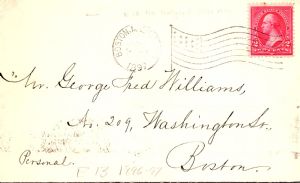 BOSTON, M
1897
2 2
Mr. George Fred Williams,
No. 209, Washington St.
Boston.
Personal.
F 13 1896-97